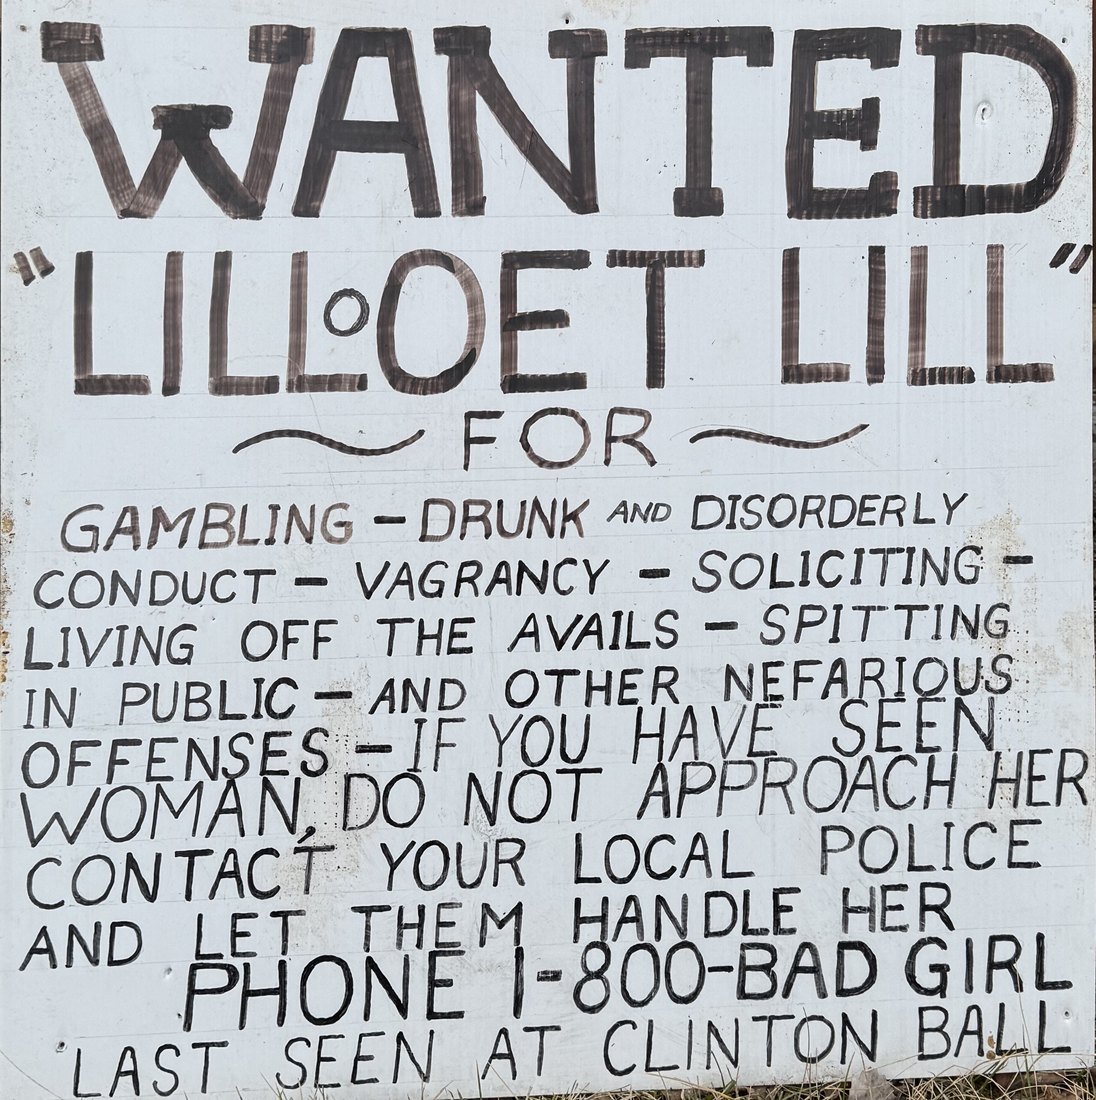 WANTED
"LILLoOET LILL"
~ FOR ~
GAMBLING - DRUNK AND DISORDERLY
CONDUCT - VAGRANCY - SOLICITING -
LIVING OFF THE AVAILS - SPITTING
IN PUBLIC - AND OTHER NEFARIOUS
OFFENSES - IF YOU HAVE SEEN
WOMAN, DO NOT APPROACH HER
CONTACT YOUR LOCAL POLICE
AND LET THEM HANDLE HER
PHONE 1-800-BAD GIRL
LAST SEEN AT CLINTON BALL